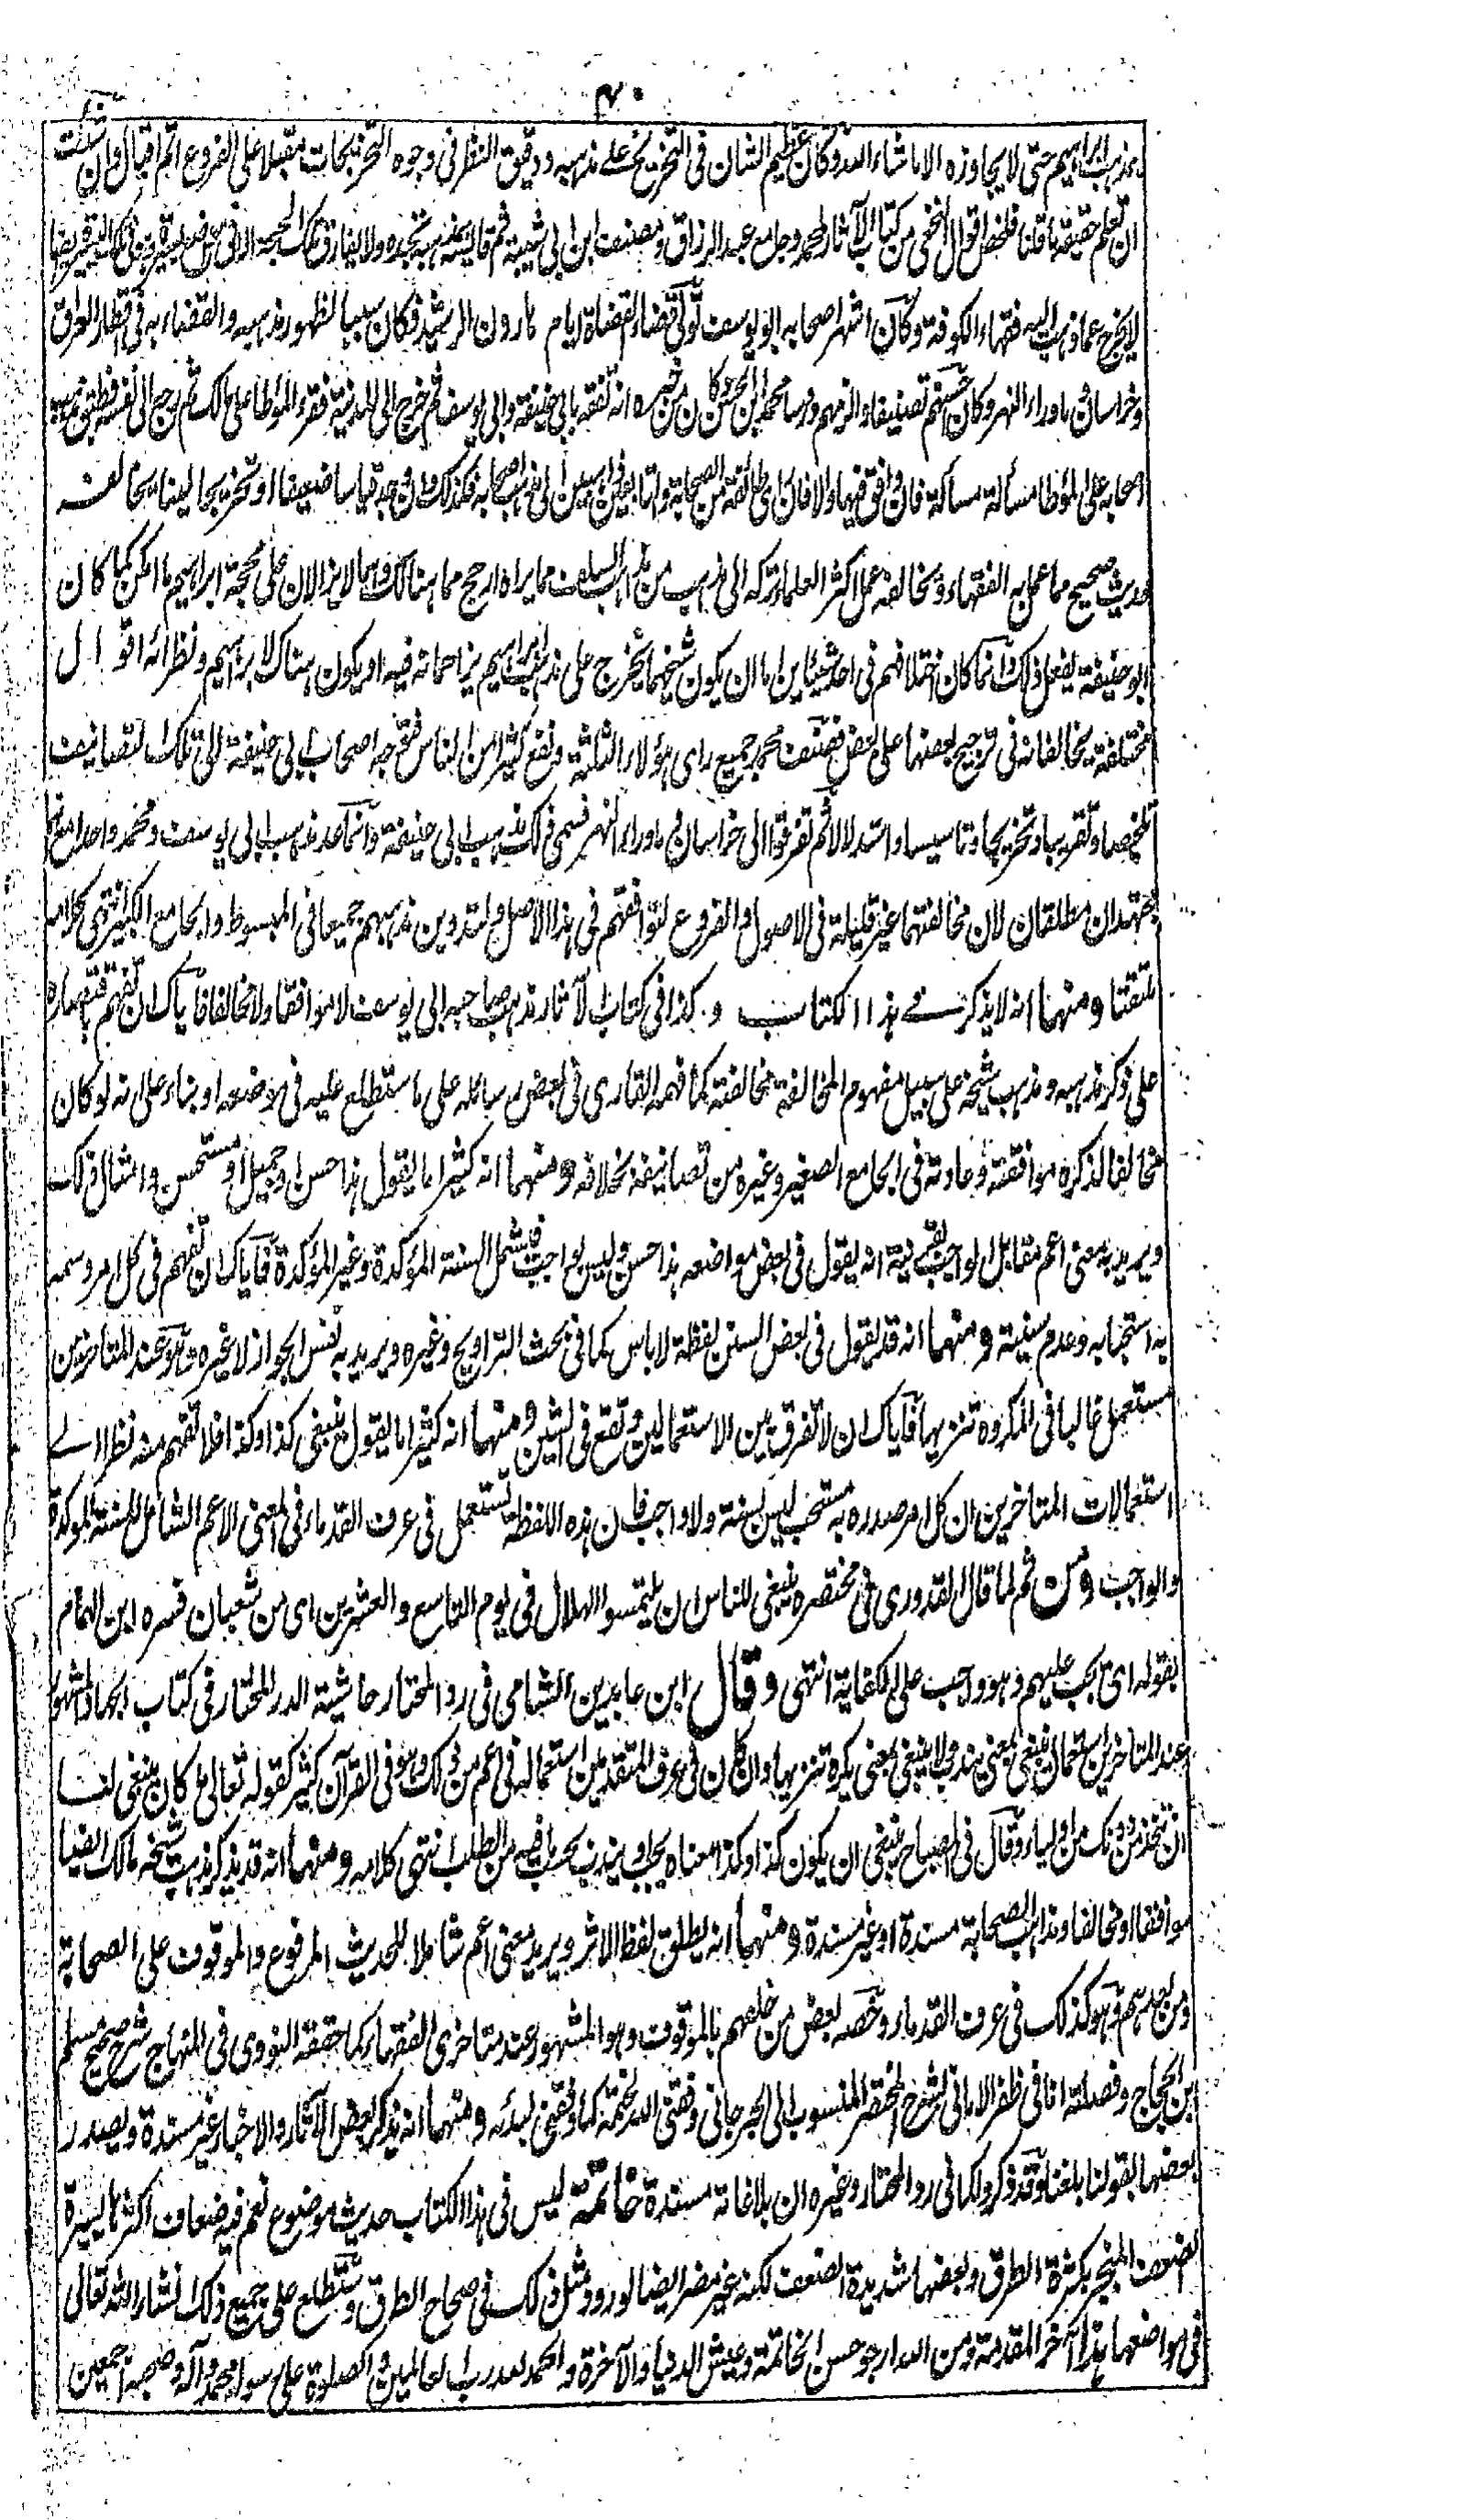 ٤٠
بمذهب ابراهيم حتى لا يجاوزه الا ما شاء الله وكان عظيم الشان فى التخريج على مذهبه ودقيق النظر فى وجوه التخريجات مقبلا على الفروع اتم اقبال وان شئت
ان تعلم حقيقة ما قلنا فلخص اقوال النخعى من كتاب الآثار لمحمد وجامع عبد الرزاق ومصنف ابن ابى شيبة ثم قايسه بمذهبه تجده لا يفارق تلك المحجة الا فى مواضع يسيرة وهو فى تلك اليسيرة ايضا
لا يخرج عما ذهب اليه فقهاء الكوفة وكان اشهر اصحابه ابو يوسف تولى قضاء القضاة ايام هارون الرشيد فكان سببا لظهور مذهبه والقضاء به فى اقطار العراق
وخراسان وما وراء النهر وكان احسنهم تصنيفا والزمهم درسا محمد بن الحسن وكان من خبره انه تفقه بابى حنيفة وابى يوسف ثم خرج الى المدينة فقرء المؤطا على مالك ثم رجع الى نفسه فطبق مذهب
اصحابه على المؤطا مسألة مسألة فان وافق فيها والا فان رأى طائفة من الصحابة والتابعين ذاهبين الى مذهب اصحابه فكذلك وان وجد قياسا ضعيفا او تخريجا لينا يخالفه
حديث صحيح مما عمل به الفقهاء ويخالفه عمل اكثر العلماء تركه الى مذهب من مذاهب السلف مما يراه ارجح مما هناك وهما لا يزالان على محجة ابراهيم ما امكن كما كان
ابو حنيفة يفعل ذلك وانما كان اختلافهم فى احد شيئين اما ان يكون شيخهما يخرج على مذهب ابراهيم يزاحمانه فيه او يكون هناك لابراهيم ونظرائه اقوال
مختلفة يخالفانه فى ترجيح بعضها على بعض فصنف محمد وجمع راى هؤلاء الثلثة ونفع كثيرا من الناس فتوجه اصحاب ابى حنيفة الى تلك التصانيف
تلخيصا وتقريبا وتخريجا وتاسيسا واستدلالا ثم تفرقوا الى خراسان وما وراء النهر فسمى ذلك مذهب ابى حنيفة وانما عد مذهب ابى يوسف ومحمد واحدا مع انهما
مجتهدان مطلقان لان مخالفتهما غير قليلة فى الاصول والفروع لتوافقهم فى هذا الاصل ولتدوين مذهبهم جميعا فى المبسوط والجامع الكبير انتهى كلامه
ملتقطا ومنها انه لا يذكر فى هذا الكتاب و كذا فى كتاب الآثار مذهب صاحبه ابى يوسف لا موافقا ولا مخالفا فاياك ان تفهم باقتصاره
على ذكر مذهبه ومذهب شيخه على سبيل مفهوم المخالفة مخالفته كما فهمه القارى فى بعض رسائله على ما ستطلع عليه فى موضعه او بناء على انه لو كان
مخالفا لذكره موافقته وعادته فى الجامع الصغير وغيره من تصانيفه بخلافه ومنها انه كثيرا ما يقول هذا حسن او جميل او مستحسن وامثال ذلك
ويريد به معنى اعم مقابل الواجب بقرينة انه يقول فى بعض مواضعه هذا حسن وليس بواجب فيشمل السنة المؤكدة وغير المؤكدة فاياك ان تفهم فى كل امر وسمه
به استحبابه وعدم سنيته ومنها انه قد يقول فى بعض السنن لفظة لا باس كما فى بحث التراويح وغيره ويريد به نفس الجواز لا غيره وهو عند المتاخرين
مستعمل غالبا فى المكروه تنزيها فاياك ان لا تفرق بين الاستعمالين وتقع فى الشين ومنها انه كثيرا ما يقول ينبغى كذا وكذا فلا تفهم منه نظرا الى
استعمالات المتاخرين ان كل امر صدره به مستحب ليس بسنة ولا واجب فان هذه اللفظة تستعمل فى عرف القدماء فى المعنى الاعم الشامل للسنة المؤكدة
والواجب ومن ثم لما قال القدورى فى مختصره ينبغى للناس ان يلتمسوا الهلال فى يوم التاسع والعشرين اى من شعبان فسره ابن الهمام
بقوله اى يجب عليهم وهو واجب على الكفاية انتهى وقال ابن عابدين الشامى فى رد المحتار حاشية الدر المختار فى كتاب الجهاد المشهور
عند المتاخرين استعمال ينبغى بمعنى يندب ولا ينبغى بمعنى يكره تنزيها وان كان فى عرف المتقدمين استعماله فى اعم من ذلك وهو فى القرآن كثير كقوله تعالى ما كان ينبغى لنا
ان نتخذ من دونك من اولياء وقال فى المصباح ينبغى ان يكون كذا وكذا معناه يجب او يندب بحسب ما فيه من الطلب انتهى كلامه ومنها انه قد يذكر مذهب شيخه مالك ايضا
موافقا او مخالفا ومذاهب الصحابة مسندة او غير مسندة ومنها انه يطلق لفظ الاثر ويريد معنى اعم شاملا للحديث المرفوع والموقوف على الصحابة
ومن بعدهم وهو كذلك فى عرف القدماء وخصه بعض من خلفهم بالموقوف وهو المشهور عند متاخرى الفقهاء كما حققه النووى فى المنهاج شرح صحيح مسلم
ابن الحجاج وفصلته انا فى ظفر الامانى لشرح المختصر المنسوب الى الجرجانى وفقنى الله لختمه كما وفقنى لبدئه ومنها انه يذكر بعض الآثار والاخبار غير مسندة ويصدر
بعضها بقولنا بلغنا وقد ذكروا كما فى رد المحتار وغيره ان بلاغاته مسندة خاتمة ليس فى هذا الكتاب حديث موضوع نعم فيه ضعاف اكثرها يسيرة
الضعف المنجبر بكثرة الطرق وبعضها شديدة الضعف لكنه غير مضر ايضا لورود مثل ذلك فى صحاح الطرق وستطلع على جميع ذلك انشاء الله تعالى
فى مواضعها هذا آخر المقدمة ومن الله ارجو حسن الخاتمة وعيش الدنيا والآخرة والحمد لله رب العالمين والصلوة على رسوله محمد وآله وصحبه اجمعين